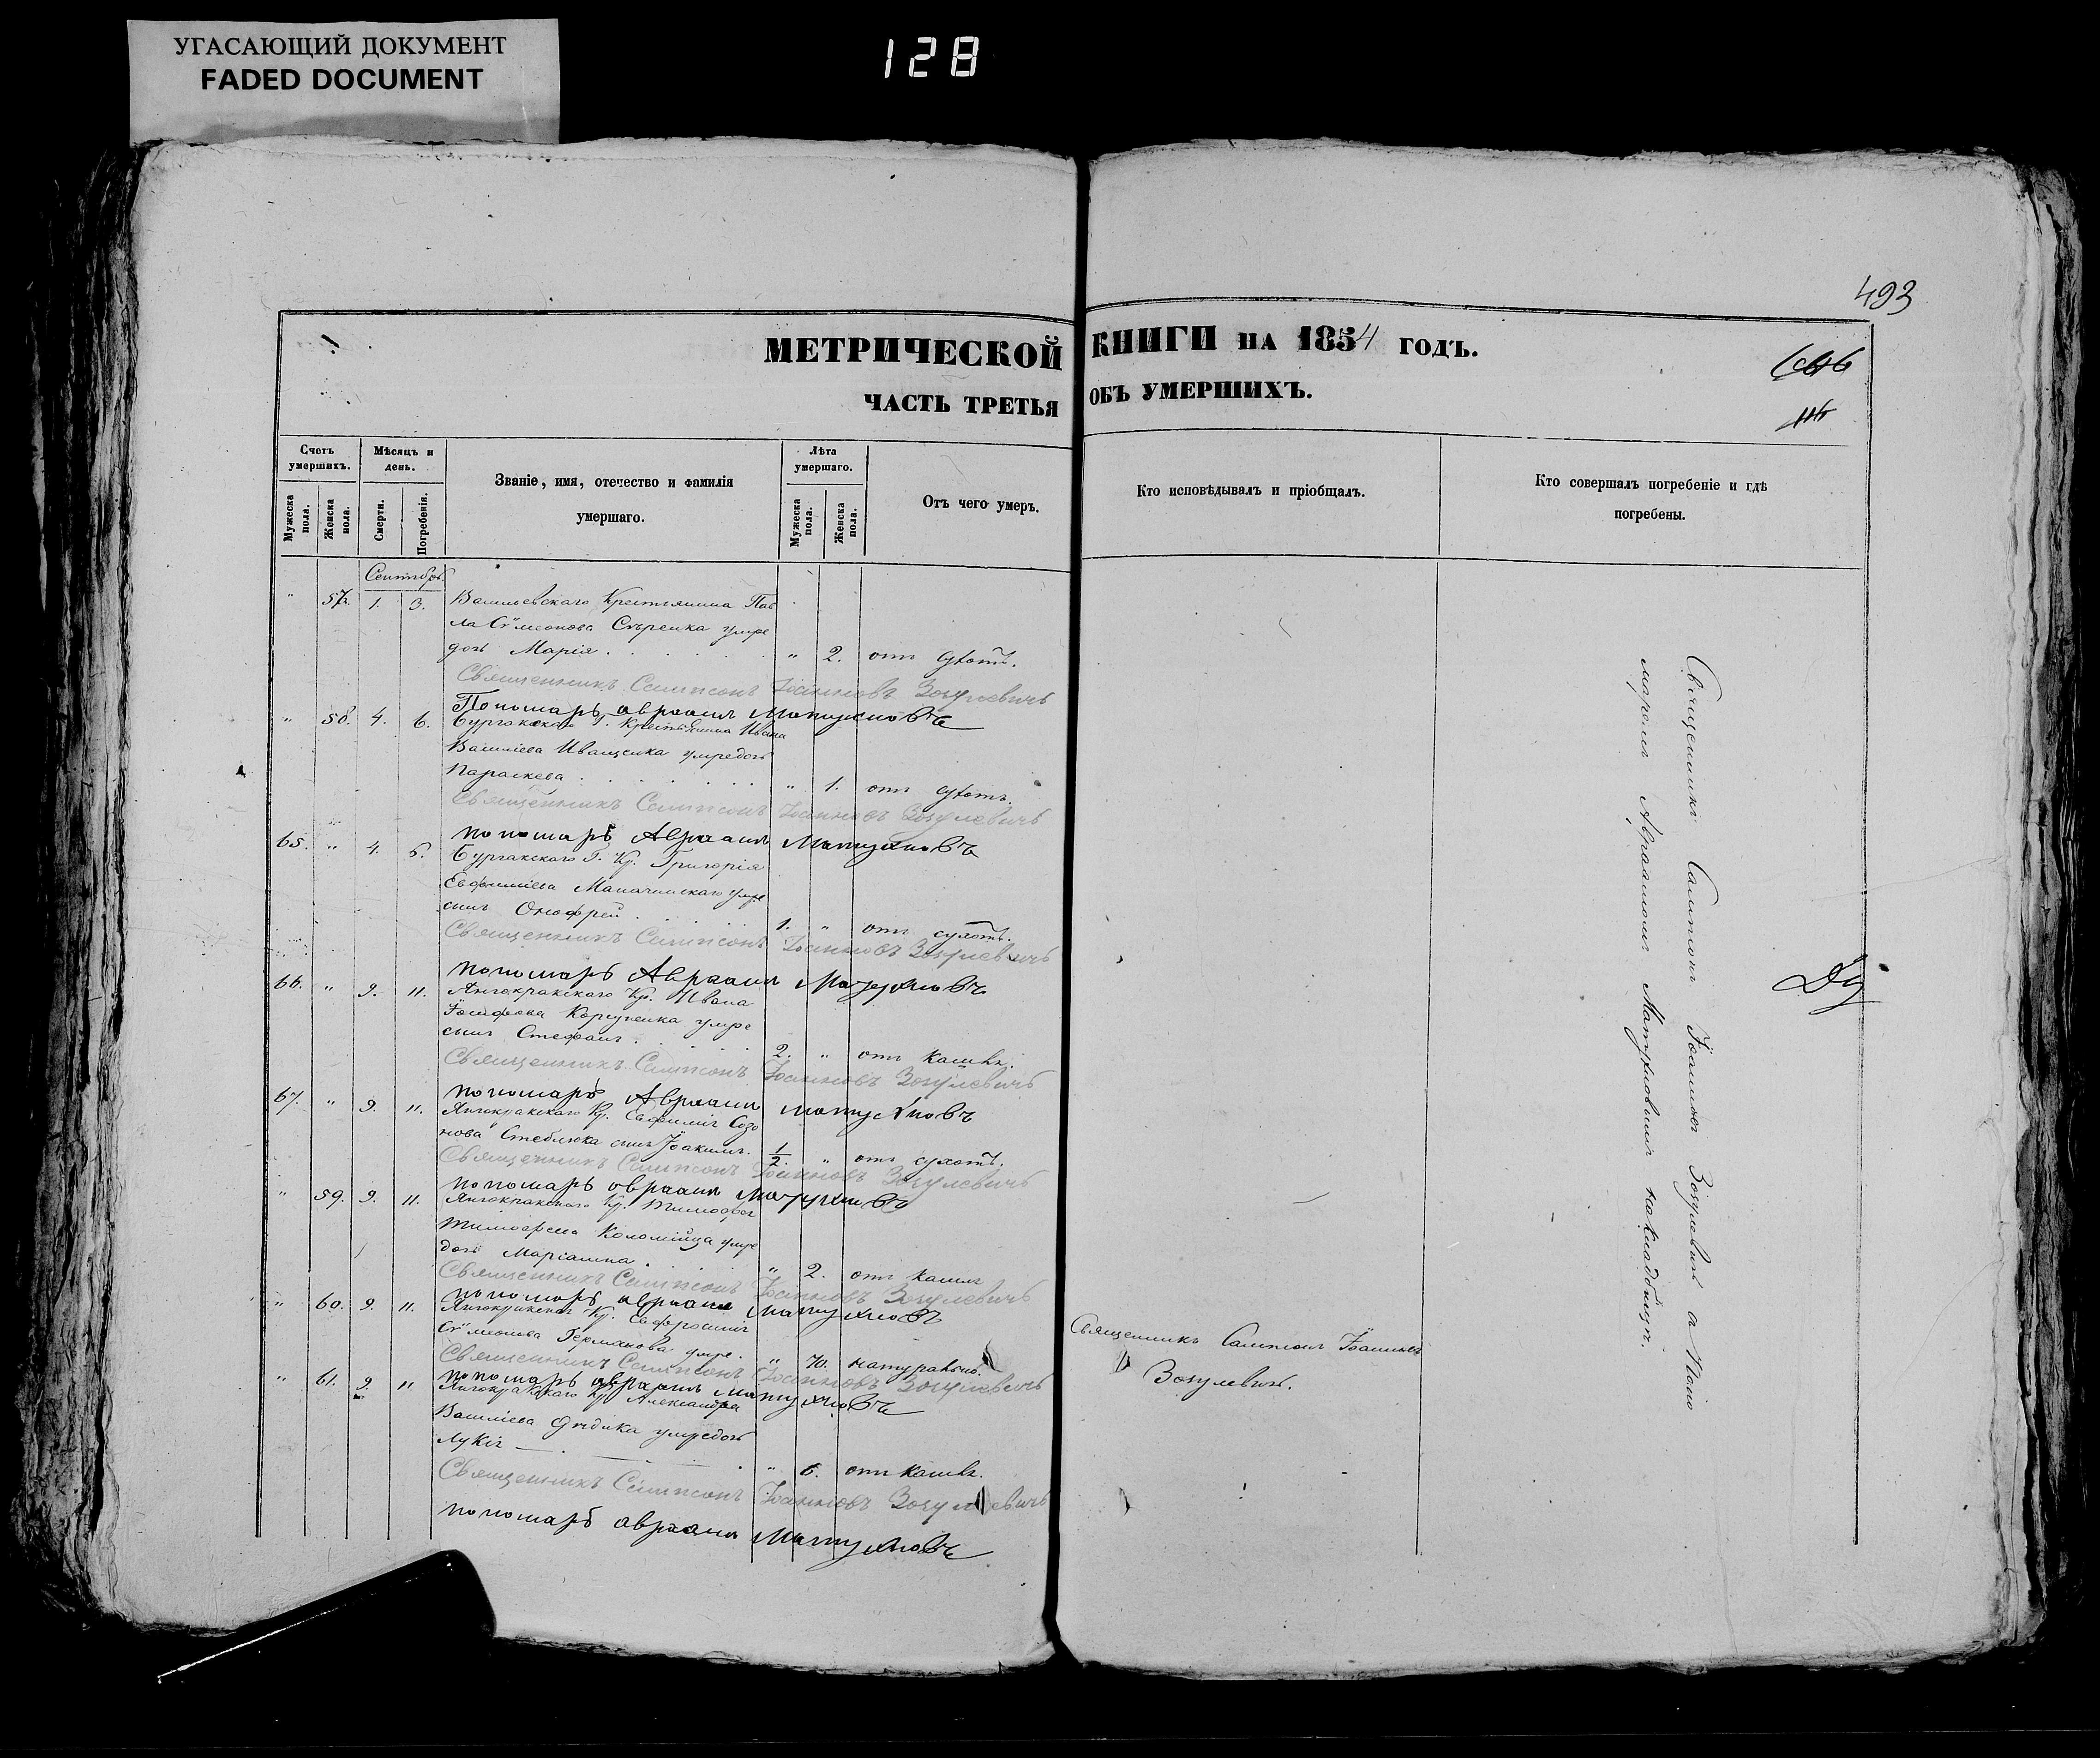 УГАСАЮЩИЙ ДОКУМЕНТ
FADED DOCUMENT
128
493
МЕТРИЧЕСКОЙ КНИГИ НА 1854 ГОДЪ.
ЧАСТЬ ТРЕТЬЯ ОБЪ УМЕРШИХЪ.
Счетъ умершихъ.
Мужеска пола.
Женска пола.
Мѣсяцъ и день.
Смерти.
Погребенія.
Званіе, имя, отечество и фамилія умершаго.
Лѣта умершаго.
Мужеска пола.
Женска пола.
Отъ чего умеръ.
Кто исповѣдывалъ и пріобщалъ.
Кто совершалъ погребеніе и гдѣ погребены.
Сентябрь.
" 57. 1. 3. Васильевскаго Крестьянина Пав
ла Сѵмеонова умре
дочь Марія. " 2. отъ
Священникъ Сампсонъ Іоанновъ Зозулевичъ
Пономарь Авраамъ Матухновъ
" 58. 4. 6. Бургакскаго Г. Крестьянина Ивана
Василіева Иващенка умре дочь
Параскева. " 1. отъ
Священникъ Сампсонъ Іоанновъ Зозулевичъ
пономарь Авраамъ Матухновъ
65. " 4. 6. Бургакскаго Г. Кр. Григорія
Евфиміева умре
сынъ Онофрей. 1. " отъ сухотъ.
Священникъ Сампсонъ Іоанновъ Зозулевичъ
пономарь Авраамъ Матухновъ
66. " 9. 11. Янчокракскаго Кр. Ивана
Іосифова умре
сынъ Стефанъ. 2. " отъ кашля.
Священникъ Сампсонъ Іоанновъ Зозулевичъ
пономарь Авраамъ Матухновъ
67. " 9. 11. Янчокракскаго Кр. Евфимія Созо
нова Стеблюка сынъ Іоакимъ. 1/2. " отъ сухотъ.
Священникъ Сампсонъ Іоанновъ Зозулевичъ
пономарь авраамъ Матухновъ
" 59. 9. 11. Янчокракскаго Кр. Тимофея
Тимофеева Коломійца умре
дочь Маріанна. " 2. отъ кашля
Священникъ Сампсонъ Іоанновъ Зозулевичъ
пономарь авраамъ Матухновъ
" 60. 9. 11. Янчокракская Кр. Евфросинія
Сѵмеонова умре. " 70. натурально.
Священникъ Сампсонъ Іоанновъ Зозулевичъ
пономарь авраамъ Матухновъ
" 61. 9. 11 Янчокракскаго Кр. Александра
Василіева Дѣдика умре дочь
" 6. отъ кашля.
Священникъ Сампсонъ Іоанновъ Зозулевичъ
пономарь авраамъ Матухновъ
Священникъ Сампсонъ Іоанновъ
Зозулевичъ.
Священникъ Сампсонъ Іоанновъ Зозулевичъ а Поно
маремъ Авраамомъ Матухновымъ на кладбищѣ.